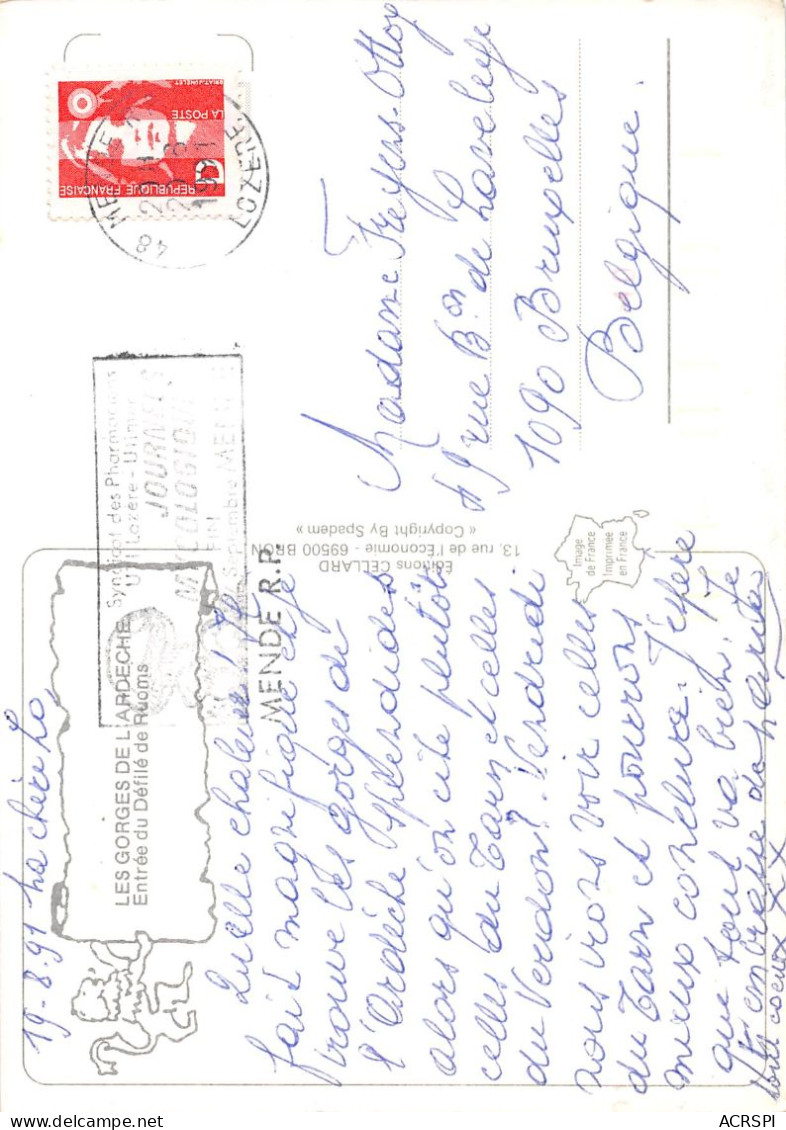 19-8-91 Ma chère Lo,
Quelle chaleur ! Il
fait magnifique et je
trouve les gorges de
l'Ardèche splendides
alors qu'on cite plutôt
celles du Tarn et celles
du Verdon ?. Vendredi
nous irons voir celles
du Tarn et pourrons
mieux conclure. J'espère
que tout va bien. Je
t'embrasse de
tout coeur XX
LES GORGES DE L'ARDECHE
Entrée du Défilé de Ruoms
Syndicat des Pharmaciens
JOURNEES
MYCOLOGIQUES
FIN
Septembre MENDE
MENDE R.P.
Editions CELLARD
13, rue de l'Economie - 69500 BRON
« Copyright By Spadem »
Image
de France
Imprimée
en France
Madame Freyers-Ottoy
49 rue Bon de Laveleye
1090 Bruxelles
Belgique.
REPUBLIQUE FRANÇAISE
LA POSTE
48 MENDE
20 8
1991
LOZERE
ACRSPI